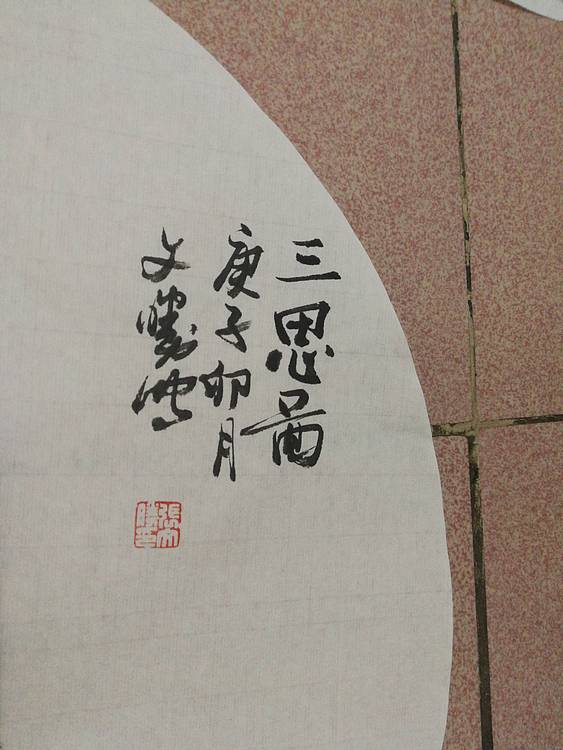 三思啚
庚子卯月
文勝